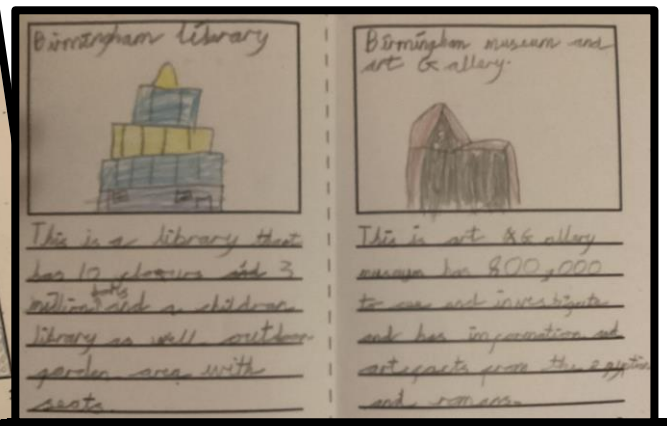 Birmingham library
This is a library that
has 10 floors and 3
million books and a children
library as well outdoor
garden area with
seats.
Birmingham museum and
art Gallery.
This is art & Gallery
museum has 800,000
to see and investigate
and has information and
artefacts from the egyptians
and romans.